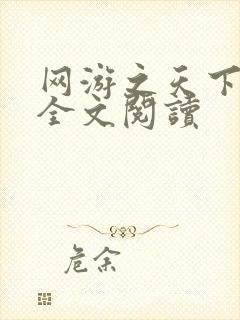 网游之天下
全文閱讀
危余